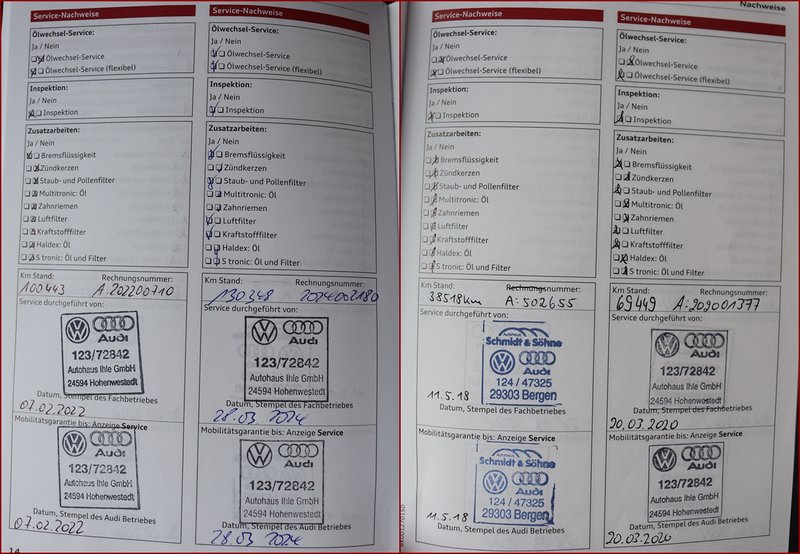 Service-Nachweise
Ölwechsel-Service:
Ja / Nein
Ölwechsel-Service
Ölwechsel-Service (flexibel)
Inspektion:
Ja / Nein
Inspektion
Zusatzarbeiten:
Ja / Nein
Bremsflüssigkeit
Zündkerzen
Staub- und Pollenfilter
Multitronic: Öl
Zahnriemen
Luftfilter
Kraftstofffilter
Haldex: Öl
S tronic: Öl und Filter
Km Stand: Rechnungsnummer:
100443 A:202200710
Service durchgeführt von:
Audi
123/72842
Autohaus Ihle GmbH
24594 Hohenwestedt
Datum, Stempel des Fachbetriebes
07.02.2022
Mobilitätsgarantie bis: Anzeige Service
Audi
123/72842
Autohaus Ihle GmbH
24594 Hohenwestedt
Datum, Stempel des Audi Betriebes
07.02.2022
14
Service-Nachweise
Ölwechsel-Service:
Ja / Nein
Ölwechsel-Service
Ölwechsel-Service (flexibel)
Inspektion:
Ja / Nein
Inspektion
Zusatzarbeiten:
Ja / Nein
Bremsflüssigkeit
Zündkerzen
Staub- und Pollenfilter
Multitronic: Öl
Zahnriemen
Luftfilter
Kraftstofffilter
Haldex: Öl
S tronic: Öl und Filter
Km Stand: Rechnungsnummer:
130348 2024002180
Service durchgeführt von:
Audi
123/72842
Autohaus Ihle GmbH
24594 Hohenwestedt
Datum, Stempel des Fachbetriebes
28.03.2024
Mobilitätsgarantie bis: Anzeige Service
Audi
123/72842
Autohaus Ihle GmbH
24594 Hohenwestedt
Datum, Stempel des Audi Betriebes
28.03.2024
Service-Nachweise
Ölwechsel-Service:
Ja / Nein
Ölwechsel-Service
Ölwechsel-Service (flexibel)
Inspektion:
Ja / Nein
Inspektion
Zusatzarbeiten:
Ja / Nein
Bremsflüssigkeit
Zündkerzen
Staub- und Pollenfilter
Multitronic: Öl
Zahnriemen
Luftfilter
Kraftstofffilter
Haldex: Öl
S tronic: Öl und Filter
Km Stand: Rechnungsnummer:
38518km A:502655
Service durchgeführt von:
Autohaus
Schmidt & Söhne
Audi
124 / 47325
29303 Bergen
11.5.18
Datum, Stempel des Fachbetriebes
Mobilitätsgarantie bis: Anzeige Service
Autohaus
Schmidt & Söhne
Audi
124 / 47325
29303 Bergen
11.5.18
Datum, Stempel des Audi Betriebes
Nachweise
Service-Nachweise
Ölwechsel-Service:
Ja / Nein
Ölwechsel-Service
Ölwechsel-Service (flexibel)
Inspektion:
Ja / Nein
Inspektion
Zusatzarbeiten:
Ja / Nein
Bremsflüssigkeit
Zündkerzen
Staub- und Pollenfilter
Multitronic: Öl
Zahnriemen
Luftfilter
Kraftstofffilter
Haldex: Öl
S tronic: Öl und Filter
Km Stand: Rechnungsnummer:
69449 A:202001377
Service durchgeführt von:
Audi
123/72842
Autohaus Ihle GmbH
24594 Hohenwestedt
Datum, Stempel des Fachbetriebes
20.03.2020
Mobilitätsgarantie bis: Anzeige Service
Audi
123/72842
Autohaus Ihle GmbH
24594 Hohenwestedt
Datum, Stempel des Audi Betriebes
20.03.2020